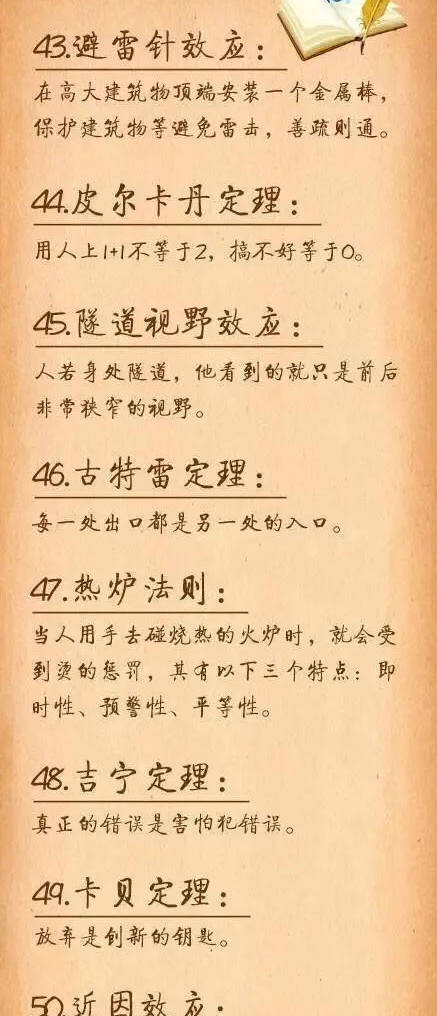 43.避雷针效应：
在高大建筑物顶端安装一个金属棒，
保护建筑物等避免雷击，善疏则通。
44.皮尔卡丹定理：
用人上1+1不等于2，搞不好等于0。
45.隧道视野效应：
人若身处隧道，他看到的就只是前后
非常狭窄的视野。
46.古特雷定理：
每一处出口都是另一处的入口。
47.热炉法则：
当人用手去碰烧热的火炉时，就会受
到烫的惩罚，其有以下三个特点：即
时性、预警性、平等性。
48.吉宁定理：
真正的错误是害怕犯错误。
49.卡贝定理：
放弃是创新的钥匙。
50.近因效应：